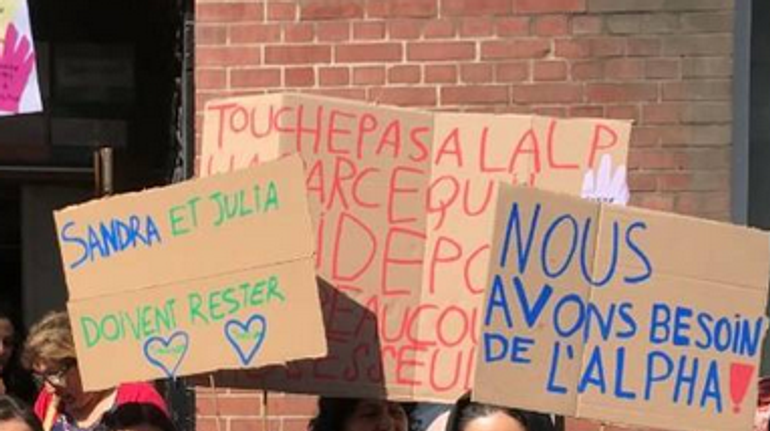 SANDRA ET JULIA
DOIVENT RESTER
TOUCHEPASALALP
ARCEQU
IDEPO
EAUCOU
SSEUL
NOUS
AVONS BESOIN
DE L'ALPHA!